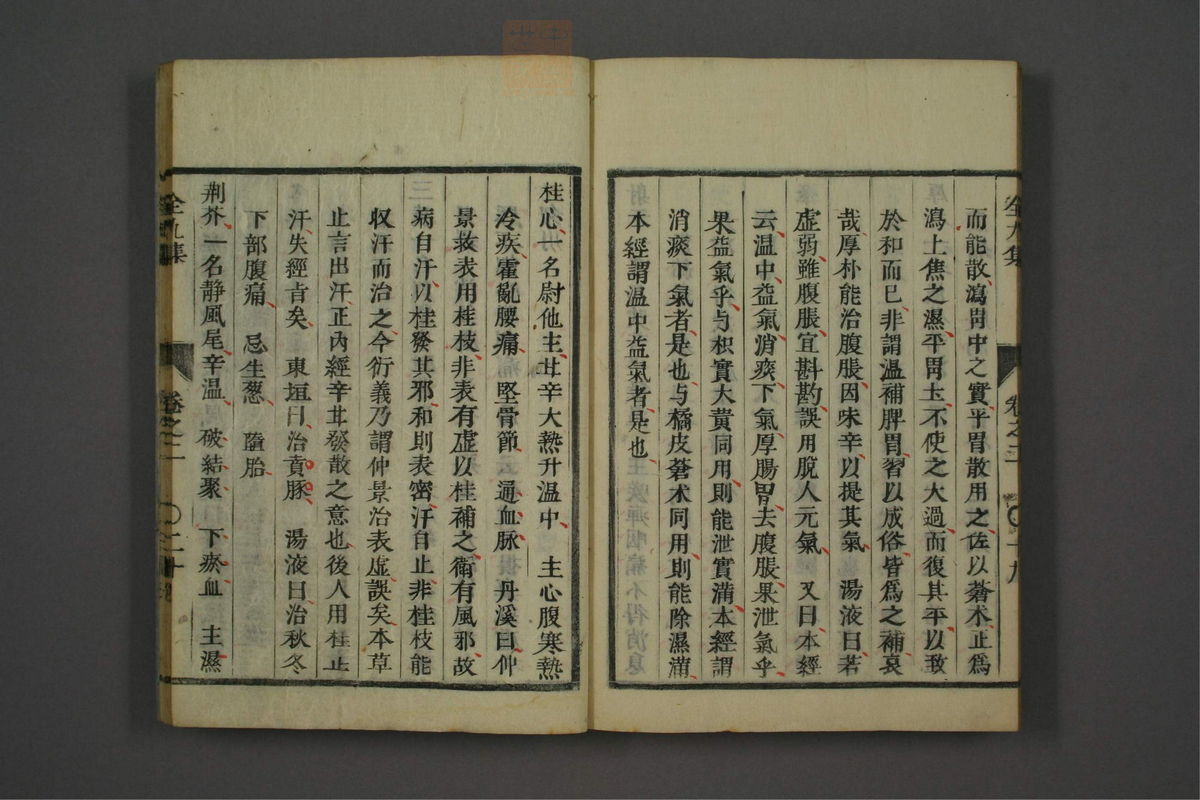 而能散瀉胃中之實平胃散用之佐以蒼术止爲
瀉上焦之濕平胃土不使之大過而復其平以致
於和而已非謂温補脾胃習以成俗皆爲之補哀
哉厚朴能治腹脹因味辛以提其氣 湯液曰若
虚弱雖腹脹宜斟酌誤用脫人元氣 又曰本經
云温中益氣消痰下氣厚腸胃去腹脹果泄氣乎
果益氣乎与枳實大黄同用則能泄實滿本經謂
消痰下氣者是也与橘皮蒼术同用則能除濕滿
本經謂温中益氣者是也
全九集 卷之二 〇十九
桂心一名尉他主甘辛大熱升温中 主心腹寒熱
冷疾霍亂腰痛 堅骨節 通血脉 丹溪曰仲
景救表用桂枝非表有虚以桂補之衛有風邪故
病自汗以桂發其邪和則表密汗自止非桂枝能
収汗而治之今衍義乃謂仲景治表虚誤矣本草
止言出汗正内經辛甘發散之意也後人用桂止
汗失經旨矣 東垣曰治賁豚 湯液曰治秋冬
下部腹痛 忌生葱 墮胎
荆芥一名静風尾辛温 破結聚 下瘀血 主濕
全九集 卷之二 〇二十